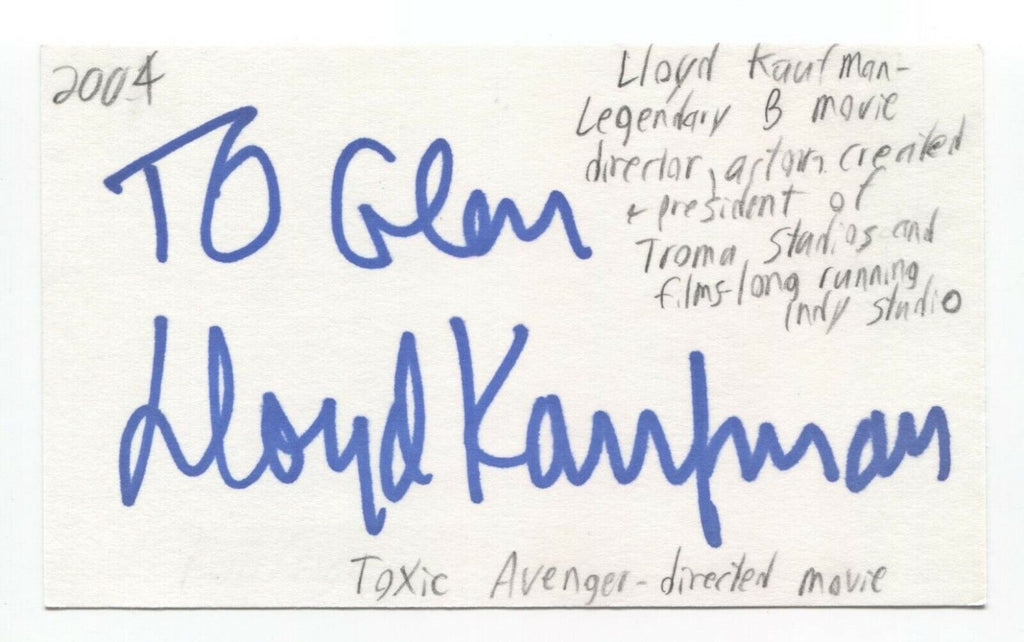 2004
Lloyd Kaufman-
Legendary B movie
director, actor, created
+ president of
Troma Studios and
films-long running
Indy studio
TO Glen
Lloyd Kaufman
Toxic Avenger-directed movie